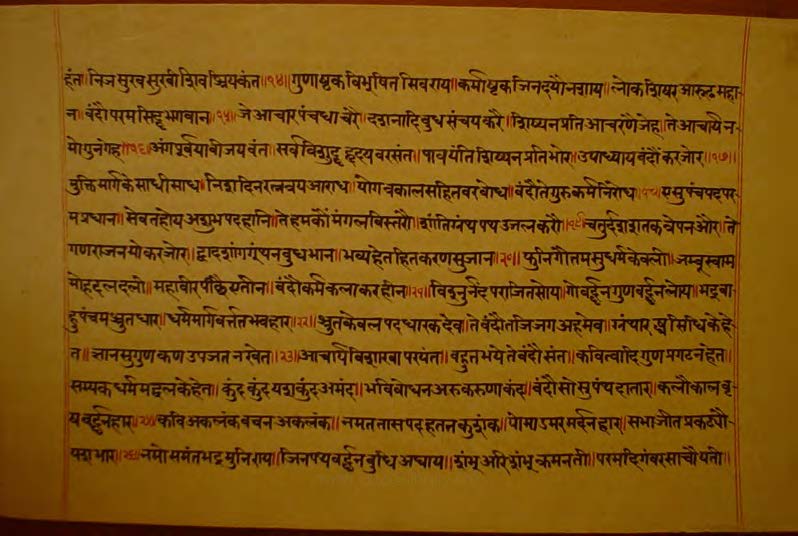 हंत॥ निज सुख सुरबी शिव श्रियकंत॥१४॥ गुणाष्टक विभूषित सिवराय॥ कर्माष्टक जिन दयौ नशाय॥ लोक शिषर आरुढ महा-
न॥ वंदौ परम सिद्ध भगवान॥१५॥ जे आचार पंचधा चरै॥ दर्शनादि बुध संचय करै॥ शिष्यन प्रति आचरणै जेह॥ ते आचार्य न-
मो गुनगेह॥१६॥ अंग पूर्वयावी जयवंत॥ सर्व विशुद्ध हृदय वरसंत॥ पाठयंति शिष्यन प्रति भोर॥ उपाध्याय वंदौं कर जोर॥१७॥
मुक्ति मार्ग के साधी साध॥ निशदिन रत्नत्रय आराध॥ योग त्रकाल सहित वर बोध॥ वंदौ ते गुरु कर्म निरोध॥१८॥ ए सु पंच पद पर-
म प्रधान॥ सेवत होय अशुभ पद हानि॥ ते हमकों मंगल बिस्तरौ॥ शांति ग्रंथ पथ उजल करौ॥१९॥ चतुर्दश शतक त्रेपन और॥ ते
गणराज नमो कर जोर॥ द्वादशांग गूंथन बुध भान॥ भव्य हेत हित करण सुजान॥२०॥ फुनि गौतम सुधर्म केवली॥ जम्बूस्वाम
मोह दल दली॥ महावीर पीछै ए तीन॥ बंदौं कर्म कला कर हीन॥२१॥ विष्नुनंद पराजित सोय॥ गोवर्द्धन गुण वर्द्धन लोय॥ भद्रबा-
हु पंचम श्रुत धार॥ धर्म मार्ग वर्त्तत भवहार॥२२॥ श्रुत केवल पद धारक देव॥ ते वंदौ तजि जग अहमेव॥ ग्रंथार सिधि के हे-
त॥ ज्ञान सुगुण कण उपजत न खेत॥२३॥ आचार्य विशाखा परयंत॥ बहुत भये ते वंदौं संत॥ कवित्वादि गुण प्रगटन हेत॥
सम्यक धर्म महल के हेत॥ कुंद कुंद यश कुंद अमंद॥ भवि बोधन अरु करुणा कंद॥ वंदौं सो सुपंथ दातार॥ कलौ काल वृ-
ष वर्द्धन हार॥२५॥ कवि अकलंक बचन अकलंक॥ नमत तास पद हत न कुशंक॥ पोमाऽमर मर्दन हार॥ सभा जीत प्रकट्यौ
यश भार॥२६॥ नमो समंतभद्र मुनिराय॥ जिन पथ वर्द्धन बुधि अघाय॥ शंभू अरि शंभू क मनती॥ परम दिगंबर साचौ यती॥